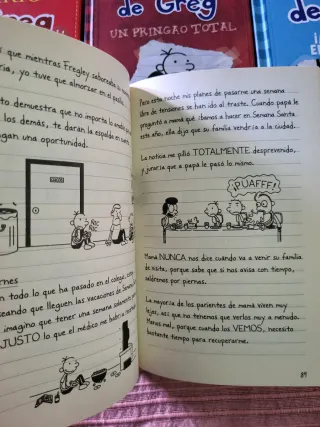 de Greg
UN PRINGAO TOTAL
de
que mientras Fregley saboreaba su
ría, yo tuve que almorzar en el
to demuestra que no importa lo
los demás, te darán la espalda en
gan una oportunidad.
RIC
RIC
rnes
n todo lo que ha pasado en el colegio,
seando que lleguen las vacaciones de
imagino que tener una semana
JUSTO lo que el médico me habría
Pero esta noche mis planes de pasarme una semana
libre de tensiones se han ido al traste. Cuando papá le
preguntó a mamá qué íbamos a hacer en Semana Santa
este año, ella dijo que su familia vendría a la ciudad.
La noticia me pilló TOTALMENTE desprevenido,
y juraría que a papá le pasó lo mismo.
¡PUAFFF!
Mamá NUNCA nos dice cuándo va a venir su familia
de visita, porque sabe que si nos avisa con tiempo,
saldremos por piernas.
La mayoría de los parientes de mamá viven muy
lejos, así que no tenemos que verlos muy a menudo.
Menos mal, porque cuando los VEMOS, necesito
bastante tiempo para recuperarme.
89